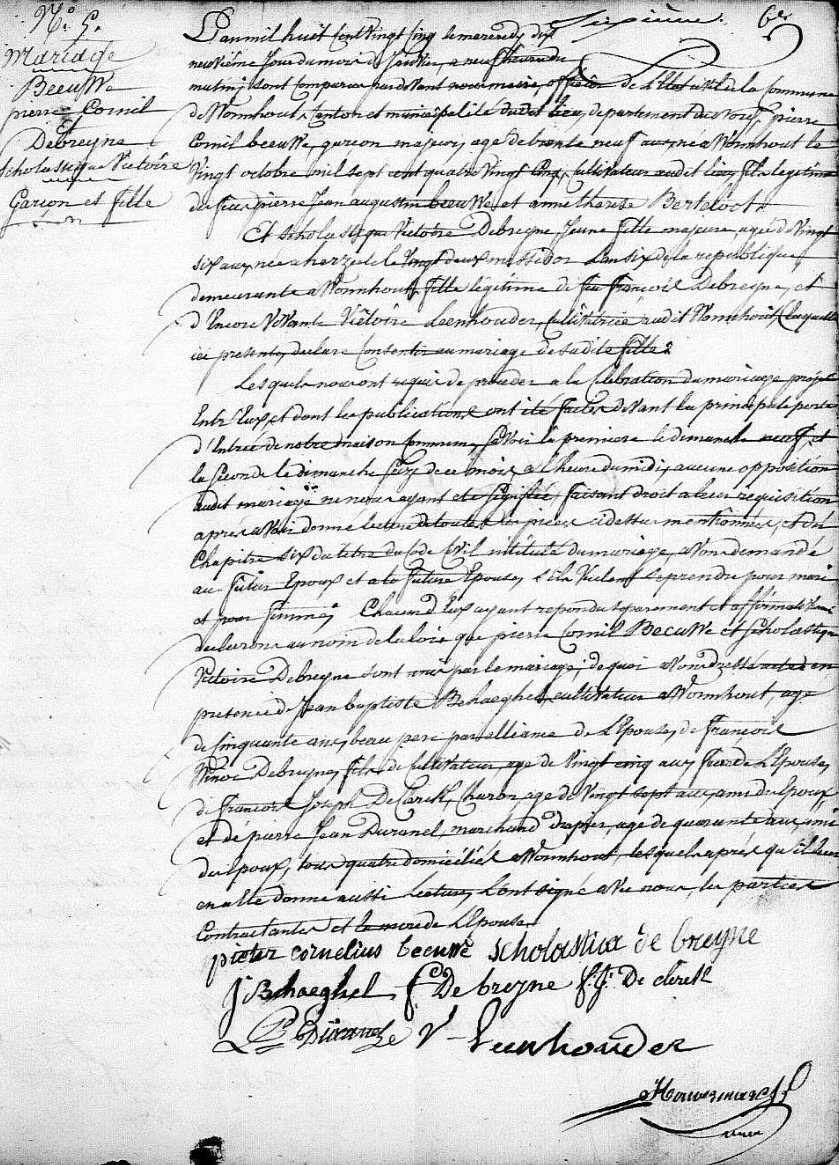 N.° 5.
Mariage
Becuwe
pierre Cornil
et
Debreyne
scholastique Victoire
Garçon et fille
Sixième. 6e
L'an mil huit Cent Vingt Cinq le mercredy dix
neuvième Jour du mois de Janvier, a neuf heures du
matin, sont comparus pardevant nous maire, officier de L'Etat civil de la Commune
de Wormhout, Canton et municipalité dudit lieu, departement du Nord, pierre
Cornil becuwe, garçon majeur, agé de trente neuf ans, né a Wormhout le
Vingt octobre mil sept cent quatre Vingt Cinq, Cultivateur audit lieu, fils legitime
de feu pierre Jean augustin becuwe et anne therese Berteloot.
Et scholastique Victoire Debreyne Jeune fille majeure, agée de Vingt
six ans, née a herzeele le Vingt deux messidor L'an six de la republique,
demeurante a Wormhout, fille légitime de feu françois Debreyne, et
d'Encore Vivante Victoire Leenhouder, Cultivatrice audit Wormhout, laquelle
ici presente, declare Consentir au mariage de sadite fille.
Lesquels nous ont requis de proceder a la Célébration du mariage projeté
Entr'Eux, et dont les publications ont été faites devant la principale porte
d'Entrée de notre maison Commune, sçavoir la premiere le dimanche neuf, et
la seconde le dimanche seize de ce mois, a l'heure du midi, aucune opposition
audit mariage ne nous ayant été signifiée, faisant droit a leur réquisition
après avoir donné lecture de toutes les pieces cidessus mentionnées, et du
Chapitre six du titre du Code Civil intitulé du mariage, avons demandé
au futur Epoux et a la future Epouse, s'ils Veulent se prendre pour mari
et pour femme, Chacun d'Eux ayant repondu separement et affirmativement
declarons au nom de la loi que pierre Cornil Becuwe et Scholastique
Victoire Debreyne sont unis par le mariage; de quoi avons dressé acte en
presence de Jean baptiste Behaeghel, cultivateur a Wormhout, agé
de Cinquante ans, beau pere par alliance de L'Epouse, de François
Winoc Debreyne, fils de Cultivateur, agé de Vingt cinq ans, frere de L'Epouse,
de françois Joseph De Clerck, Charon, agé de Vingt sept ans, ami de l'Epoux,
et de pierre Jean marchand drapier, agé de quarante ans, ami
de l'Epoux, tous quatre domiciliés a Wormhout, lesquels après qu'il leur
en a été donné aussi Lecture, L'ont signé avec nous, les parties
Contractantes et la mere de L'Epouse.
pieter cornelius becuwe scholastica de breyne
J Behaeghel f Debreyne f. J. De clerck
V Leenhouder